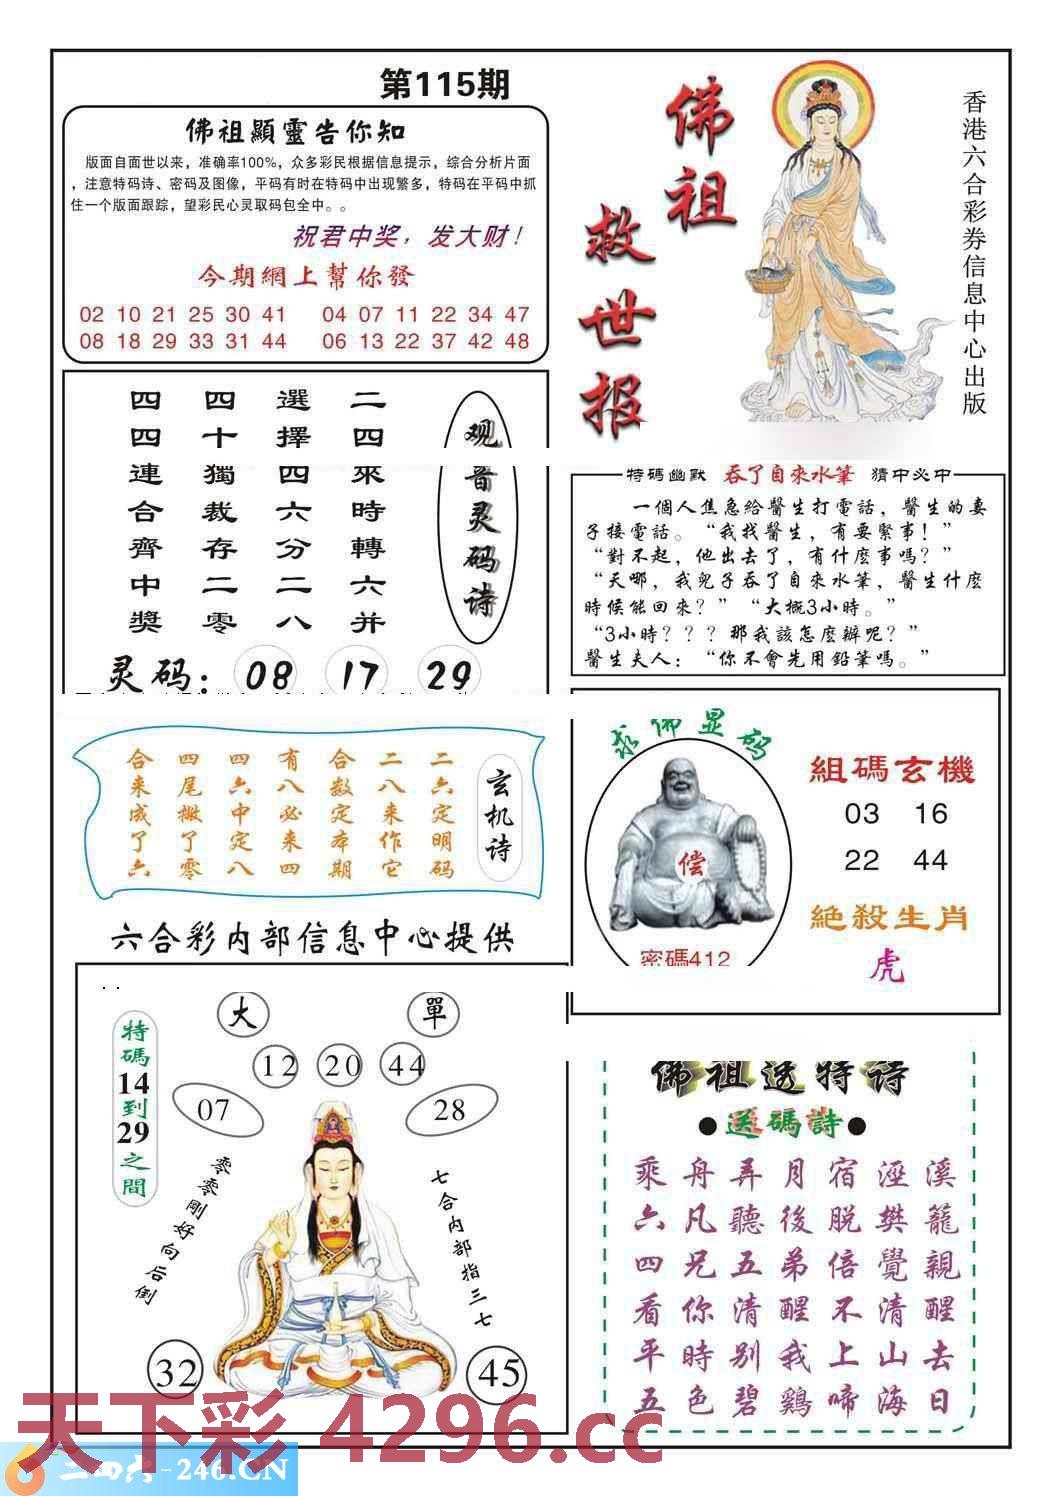 第115期
佛祖顯靈告你知
版面自面世以来，准确率100%，众多彩民根据信息提示，综合分析片面
，注意特码诗、密码及图像，平码有时在特码中出现繁多，特码在平码中抓
住一个版面跟踪，望彩民心灵取码包全中。。
祝君中奖，发大财！
今期網上幫你發
02 10 21 25 30 41 04 07 11 22 34 47
08 18 29 33 31 44 06 13 22 37 42 48
佛祖
救世报
香港六合彩券信息中心出版
观音灵码诗
二四來時轉六并
選擇四六分二八
四十獨裁存二零
四四連合齊中獎
灵码：08 17 29
特碼幽默 吞了自來水筆 猜中必中
一個人焦急給醫生打電話，醫生的妻
子接電話。“我找醫生，有要緊事！”
“對不起，他出去了，有什麼事嗎？”
“天哪，我兒子吞了自來水筆，醫生什麼
時候能回來？”“大概3小時。”
“3小時？？？那我該怎麼辦呢？”
醫生夫人：“你不會先用鉛筆嗎。”
玄机诗
二六定明码
二八来作它
合数定本期
有八必来四
四六中定八
四尾撇了零
合来成了六
六合彩内部信息中心提供
求佛显码
偿
密碼412
組碼玄機
03 16
22 44
絕殺生肖
虎
特碼14到29之間
大 單
12 20 44
07 28
零零剛好向后倒
七合内部指三七
32 45
佛祖透特诗
●送碼詩●
乘舟弄月宿涇溪
六凡聽後脫樊籠
四兄五弟倍覺親
看你清醒不清醒
平時別我上山去
五色碧鷄啼海日
天下彩 4296.cc
二四六-246.CN